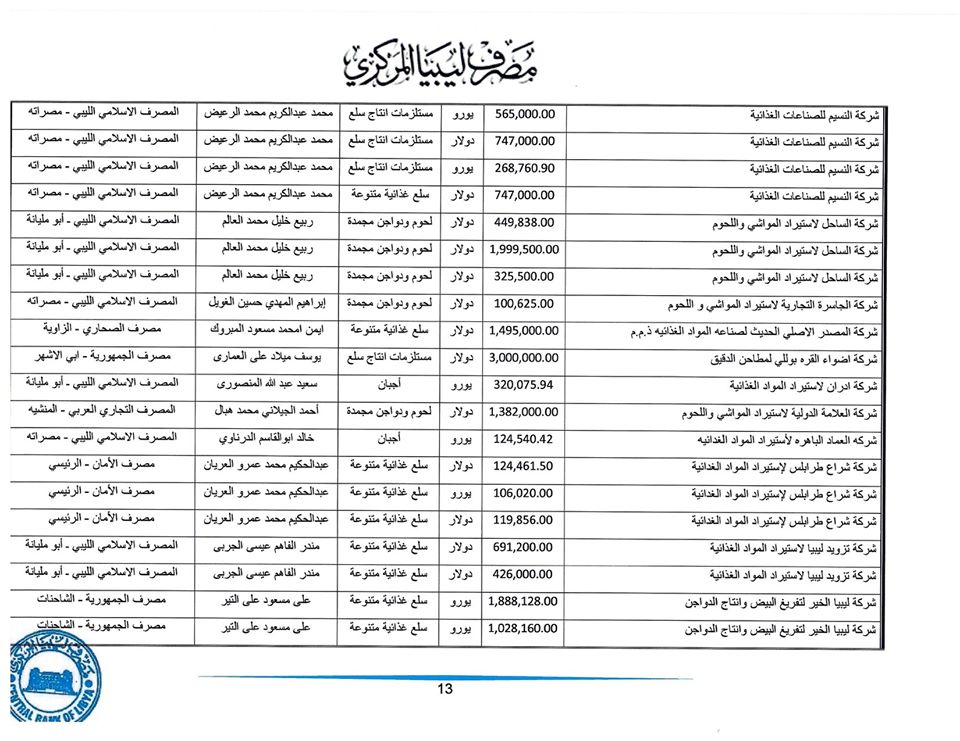 مصرف ليبيا المركزي
شركة النسيم للصناعات الغذائية 565,000.00 يورو مستلزمات انتاج سلع محمد عبدالكريم محمد الرعيض المصرف الاسلامي الليبي - مصراته
شركة النسيم للصناعات الغذائية 747,000.00 دولار مستلزمات انتاج سلع محمد عبدالكريم محمد الرعيض المصرف الاسلامي الليبي - مصراته
شركة النسيم للصناعات الغذائية 268,760.90 يورو مستلزمات انتاج سلع محمد عبدالكريم محمد الرعيض المصرف الاسلامي الليبي - مصراته
شركة النسيم للصناعات الغذائية 747,000.00 دولار سلع غذائية متنوعة محمد عبدالكريم محمد الرعيض المصرف الاسلامي الليبي - مصراته
شركة الساحل لاستيراد المواشي واللحوم 449,838.00 دولار لحوم ودواجن مجمدة ربيع خليل محمد العالم المصرف الاسلامي الليبي - أبو مليانة
شركة الساحل لاستيراد المواشي واللحوم 1,999,500.00 دولار لحوم ودواجن مجمدة ربيع خليل محمد العالم المصرف الاسلامي الليبي - أبو مليانة
شركة الساحل لاستيراد المواشي واللحوم 325,500.00 دولار لحوم ودواجن مجمدة ربيع خليل محمد العالم المصرف الاسلامي الليبي - أبو مليانة
شركة الجاسرة التجارية لاستيراد المواشي و اللحوم 100,625.00 دولار لحوم ودواجن مجمدة إبراهيم المهدي حسين الغويل المصرف الاسلامي الليبي - مصراته
شركة المصدر الاصلي الحديث لصناعه المواد الغذائيه ذ.م.م 1,495,000.00 دولار سلع غذائية متنوعة ايمن امحمد مسعود المبروك مصرف الصحاري - الزاوية
شركة اضواء القره بوللي لمطاحن الدقيق 3,000,000.00 دولار مستلزمات انتاج سلع يوسف ميلاد على العمارى مصرف الجمهورية - ابي الاشهر
شركة ادران لاستيراد المواد الغذائية 320,075.94 يورو أجبان سعيد عبد الله المنصورى المصرف الاسلامي الليبي - أبو مليانة
شركة العلامة الدولية لاستيراد المواشي واللحوم 1,382,000.00 دولار لحوم ودواجن مجمدة أحمد الجيلاني محمد هبال المصرف التجاري العربي - المنشيه
شركه العماد الباهره لأستيراد المواد الغدائيه 124,540.42 يورو أجبان خالد ابوالقاسم الدرناوي المصرف الاسلامي الليبي - مصراته
شركة شراع طرابلس لإستيراد المواد الغدائية 124,461.50 دولار سلع غذائية متنوعة عبدالحكيم محمد عمرو العريان مصرف الأمان - الرئيسي
شركة شراع طرابلس لإستيراد المواد الغدائية 106,020.00 يورو سلع غذائية متنوعة عبدالحكيم محمد عمرو العريان مصرف الأمان - الرئيسي
شركة شراع طرابلس لإستيراد المواد الغدائية 119,856.00 دولار سلع غذائية متنوعة عبدالحكيم محمد عمرو العريان مصرف الأمان - الرئيسي
شركة تزويد ليبيا لاستيراد المواد الغذائية 691,200.00 دولار سلع غذائية متنوعة مندر الفاهم عيسى الجربى المصرف الاسلامي الليبي - أبو مليانة
شركة تزويد ليبيا لاستيراد المواد الغذائية 426,000.00 دولار سلع غذائية متنوعة مندر الفاهم عيسى الجربى المصرف الاسلامي الليبي - أبو مليانة
شركة ليبيا الخير لتفريغ البيض وانتاج الدواجن 1,888,128.00 يورو سلع غذائية متنوعة على مسعود على التير مصرف الجمهورية - الشاحنات
شركة ليبيا الخير لتفريغ البيض وانتاج الدواجن 1,028,160.00 يورو سلع غذائية متنوعة على مسعود على التير مصرف الجمهورية - الشاحنات
13
مصرف ليبيا المركزي
CENTRAL BANK OF LIBYA